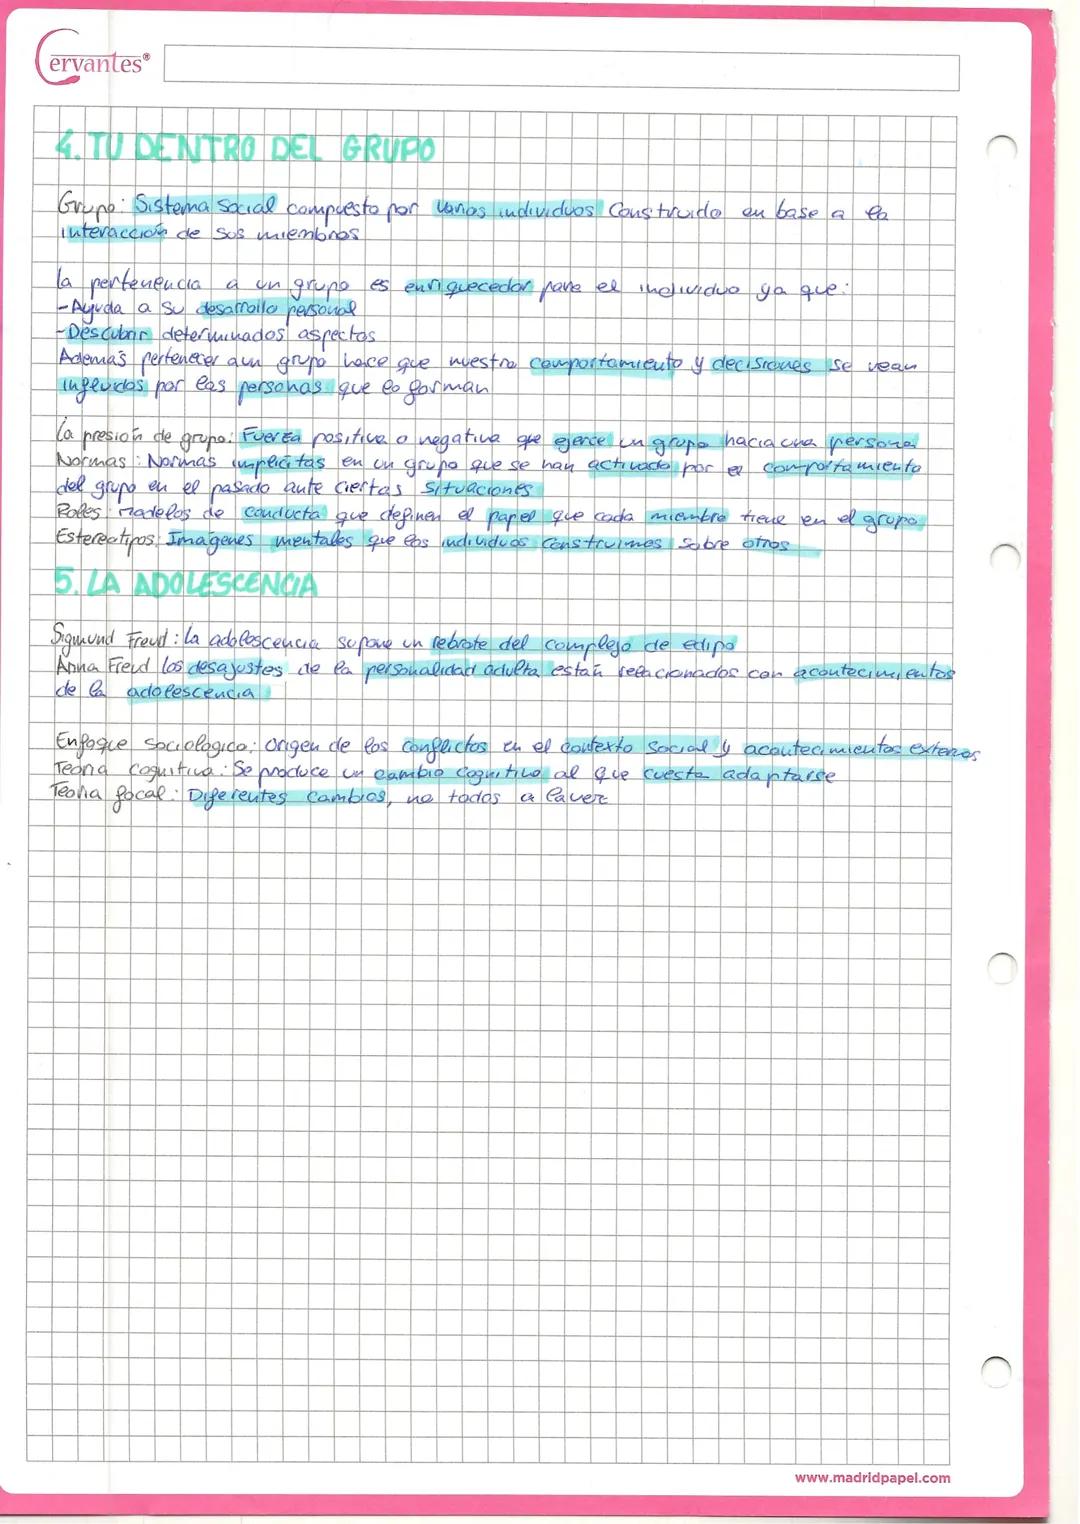 Cervantes®
4. TU DENTRO DEL GRUPO
Grupo: Sistema Social compuesto por varios individuos Construido en base a la
interacción de sus miembros
La pertenencia a un grupo es enriquecedor para el individuo ya que:
-Ayuda a su desarrollo personal
-Descubrir determinados aspectos
Además pertenecer aun grupo hace que nuestro comportamiento y decisiones se vean
influidos por las personas que lo forman
La presión de grupo: Fuerza positiva o negativa que ejerce un grupo hacia una persona
Normas: Normas implícitas en un grupo que se han activado por el comportamiento
del grupo en el pasado ante ciertas situaciones
Roles: Modelos de conducta que definen el papel que cada miembro tiene en el grupo
Estereotipos: Imagenes mentales que los individuos construimos sobre otros
5. LA ADOLESCENCIA
Sigmund Freud: La adolescencia supone un rebrote del complejo de edipo
Anna Freud los desajustes de la personalidad adulta están relacionados con acontecimientos
de la adolescencia
Enfoque sociologico: Origen de los conflictos en el contexto social y acontecimientos externos
Teoria cognitiva: Se produce un cambio cognitivo al que cuesta adaptarse
Teoria focal: Diferentes cambios, no todos a lavez
www.madridpapel.com